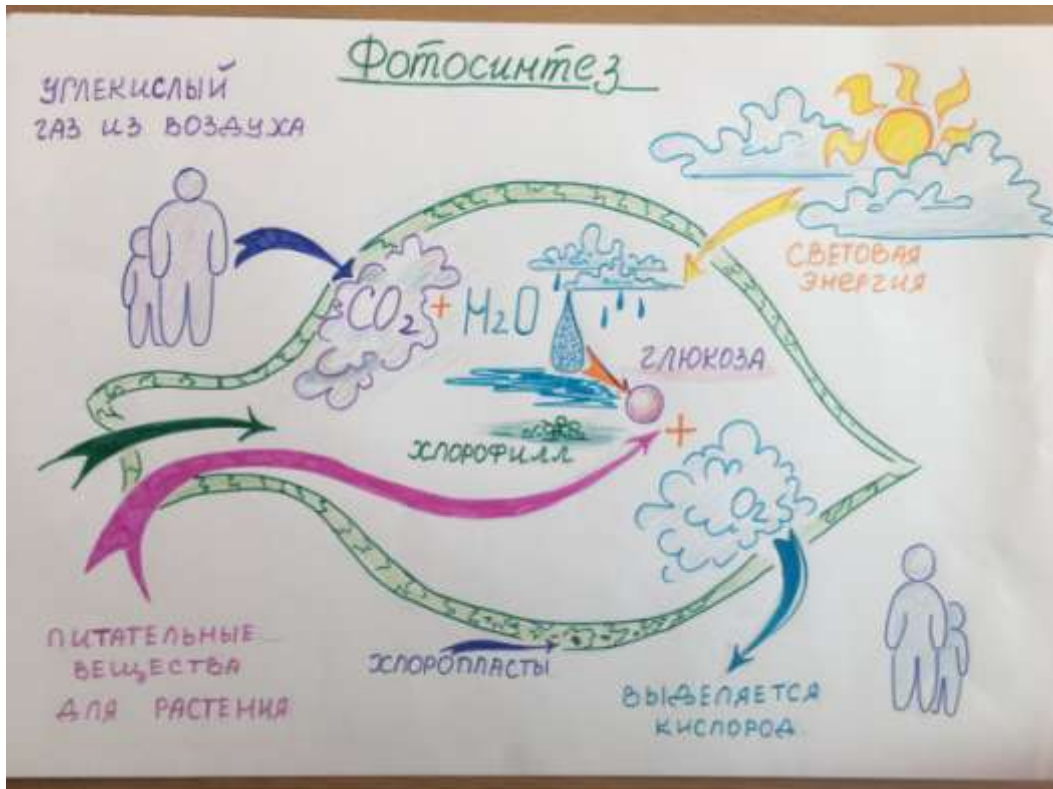 Фотосинтез
УГЛЕКИСЛЫЙ
ГАЗ ИЗ ВОЗДУХА
СВЕТОВАЯ
ЭНЕРГИЯ
CO₂ + H₂O
ГЛЮКОЗА
+
ХЛОРОФИЛЛ
O₂
ХЛОРОПЛАСТЫ
ПИТАТЕЛЬНЫЕ
ВЕЩЕСТВА
ДЛЯ РАСТЕНИЯ
ВЫДЕЛЯЕТСЯ
КИСЛОРОД